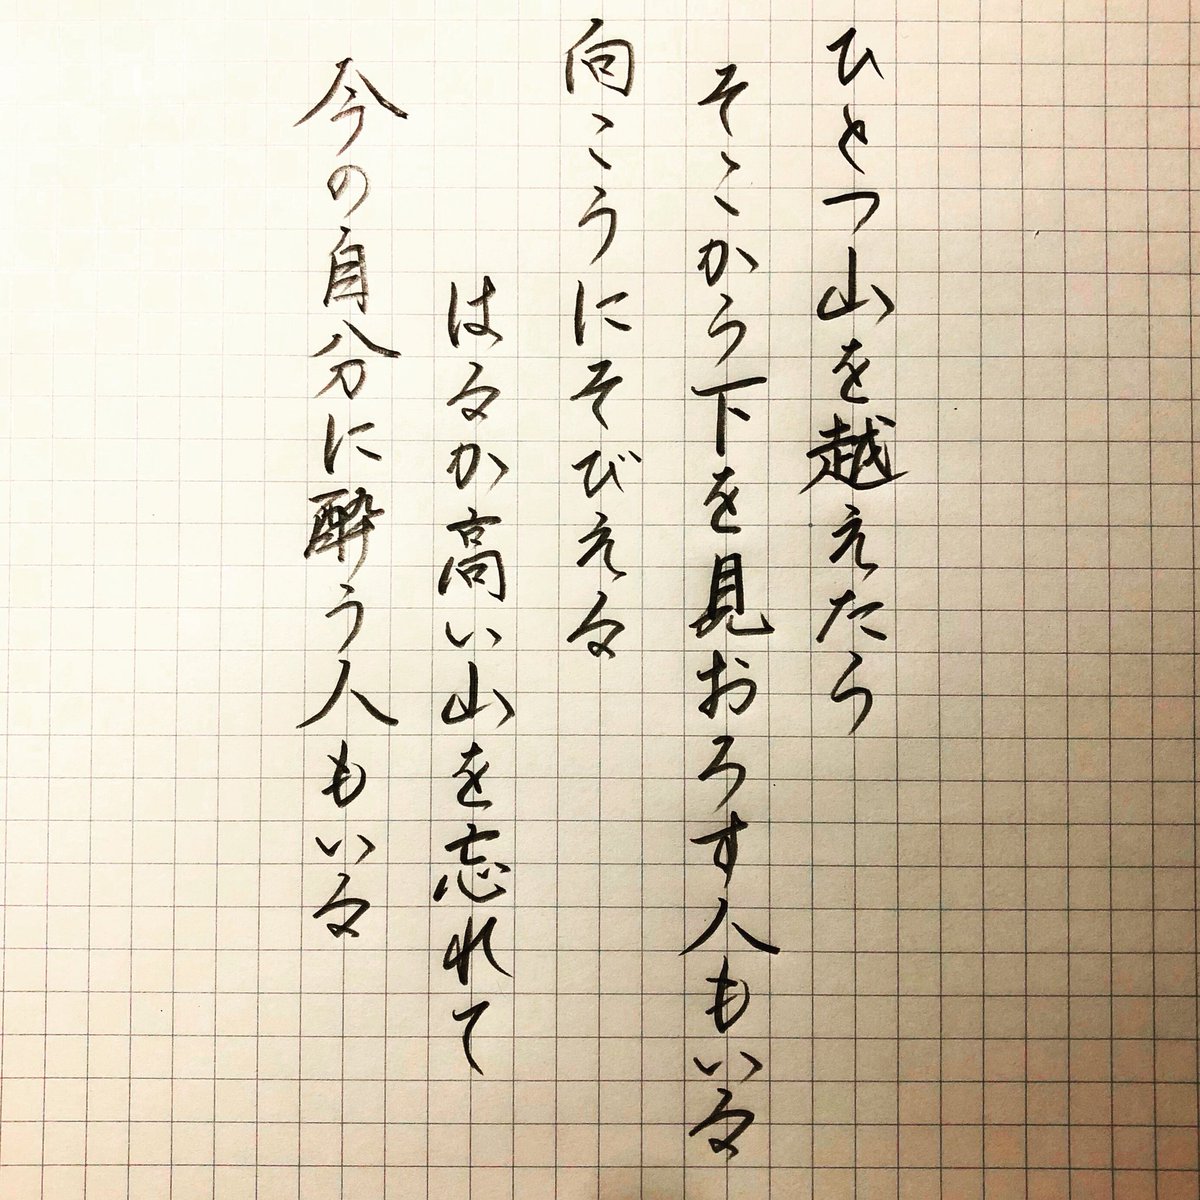 ひとつ山を越えたら
そこから下を見おろす人もいる
向こうにそびえる
はるか高い山を忘れて
今の自分に酔う人もいる